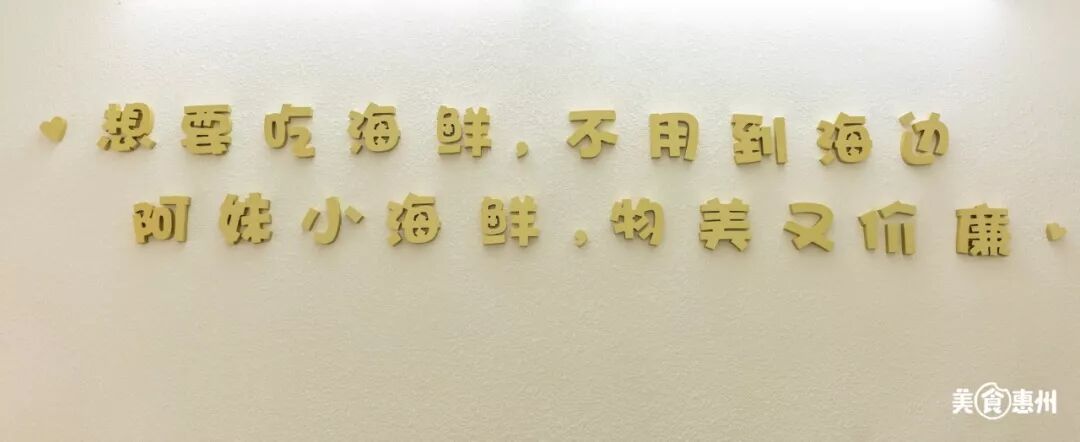 想要吃海鲜,不用到海边
阿妹小海鲜,物美又价廉
美食惠州